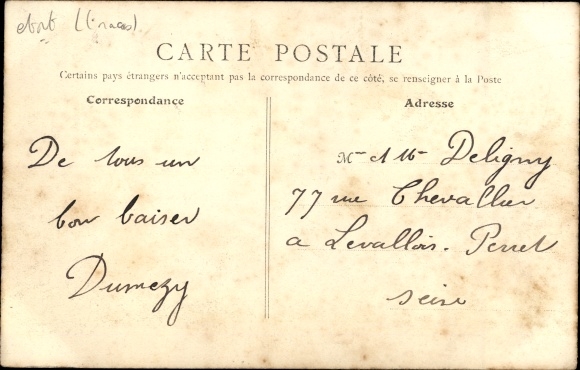 CARTE POSTALE
Certains pays étrangers n'acceptant pas la correspondance de ce côté, se renseigner à la Poste
Correspondance
De tous un
bon baiser
Dumezy
Adresse
Mr et Me Deligny
77 rue Chevallier
a Levallois-Perret
Seine